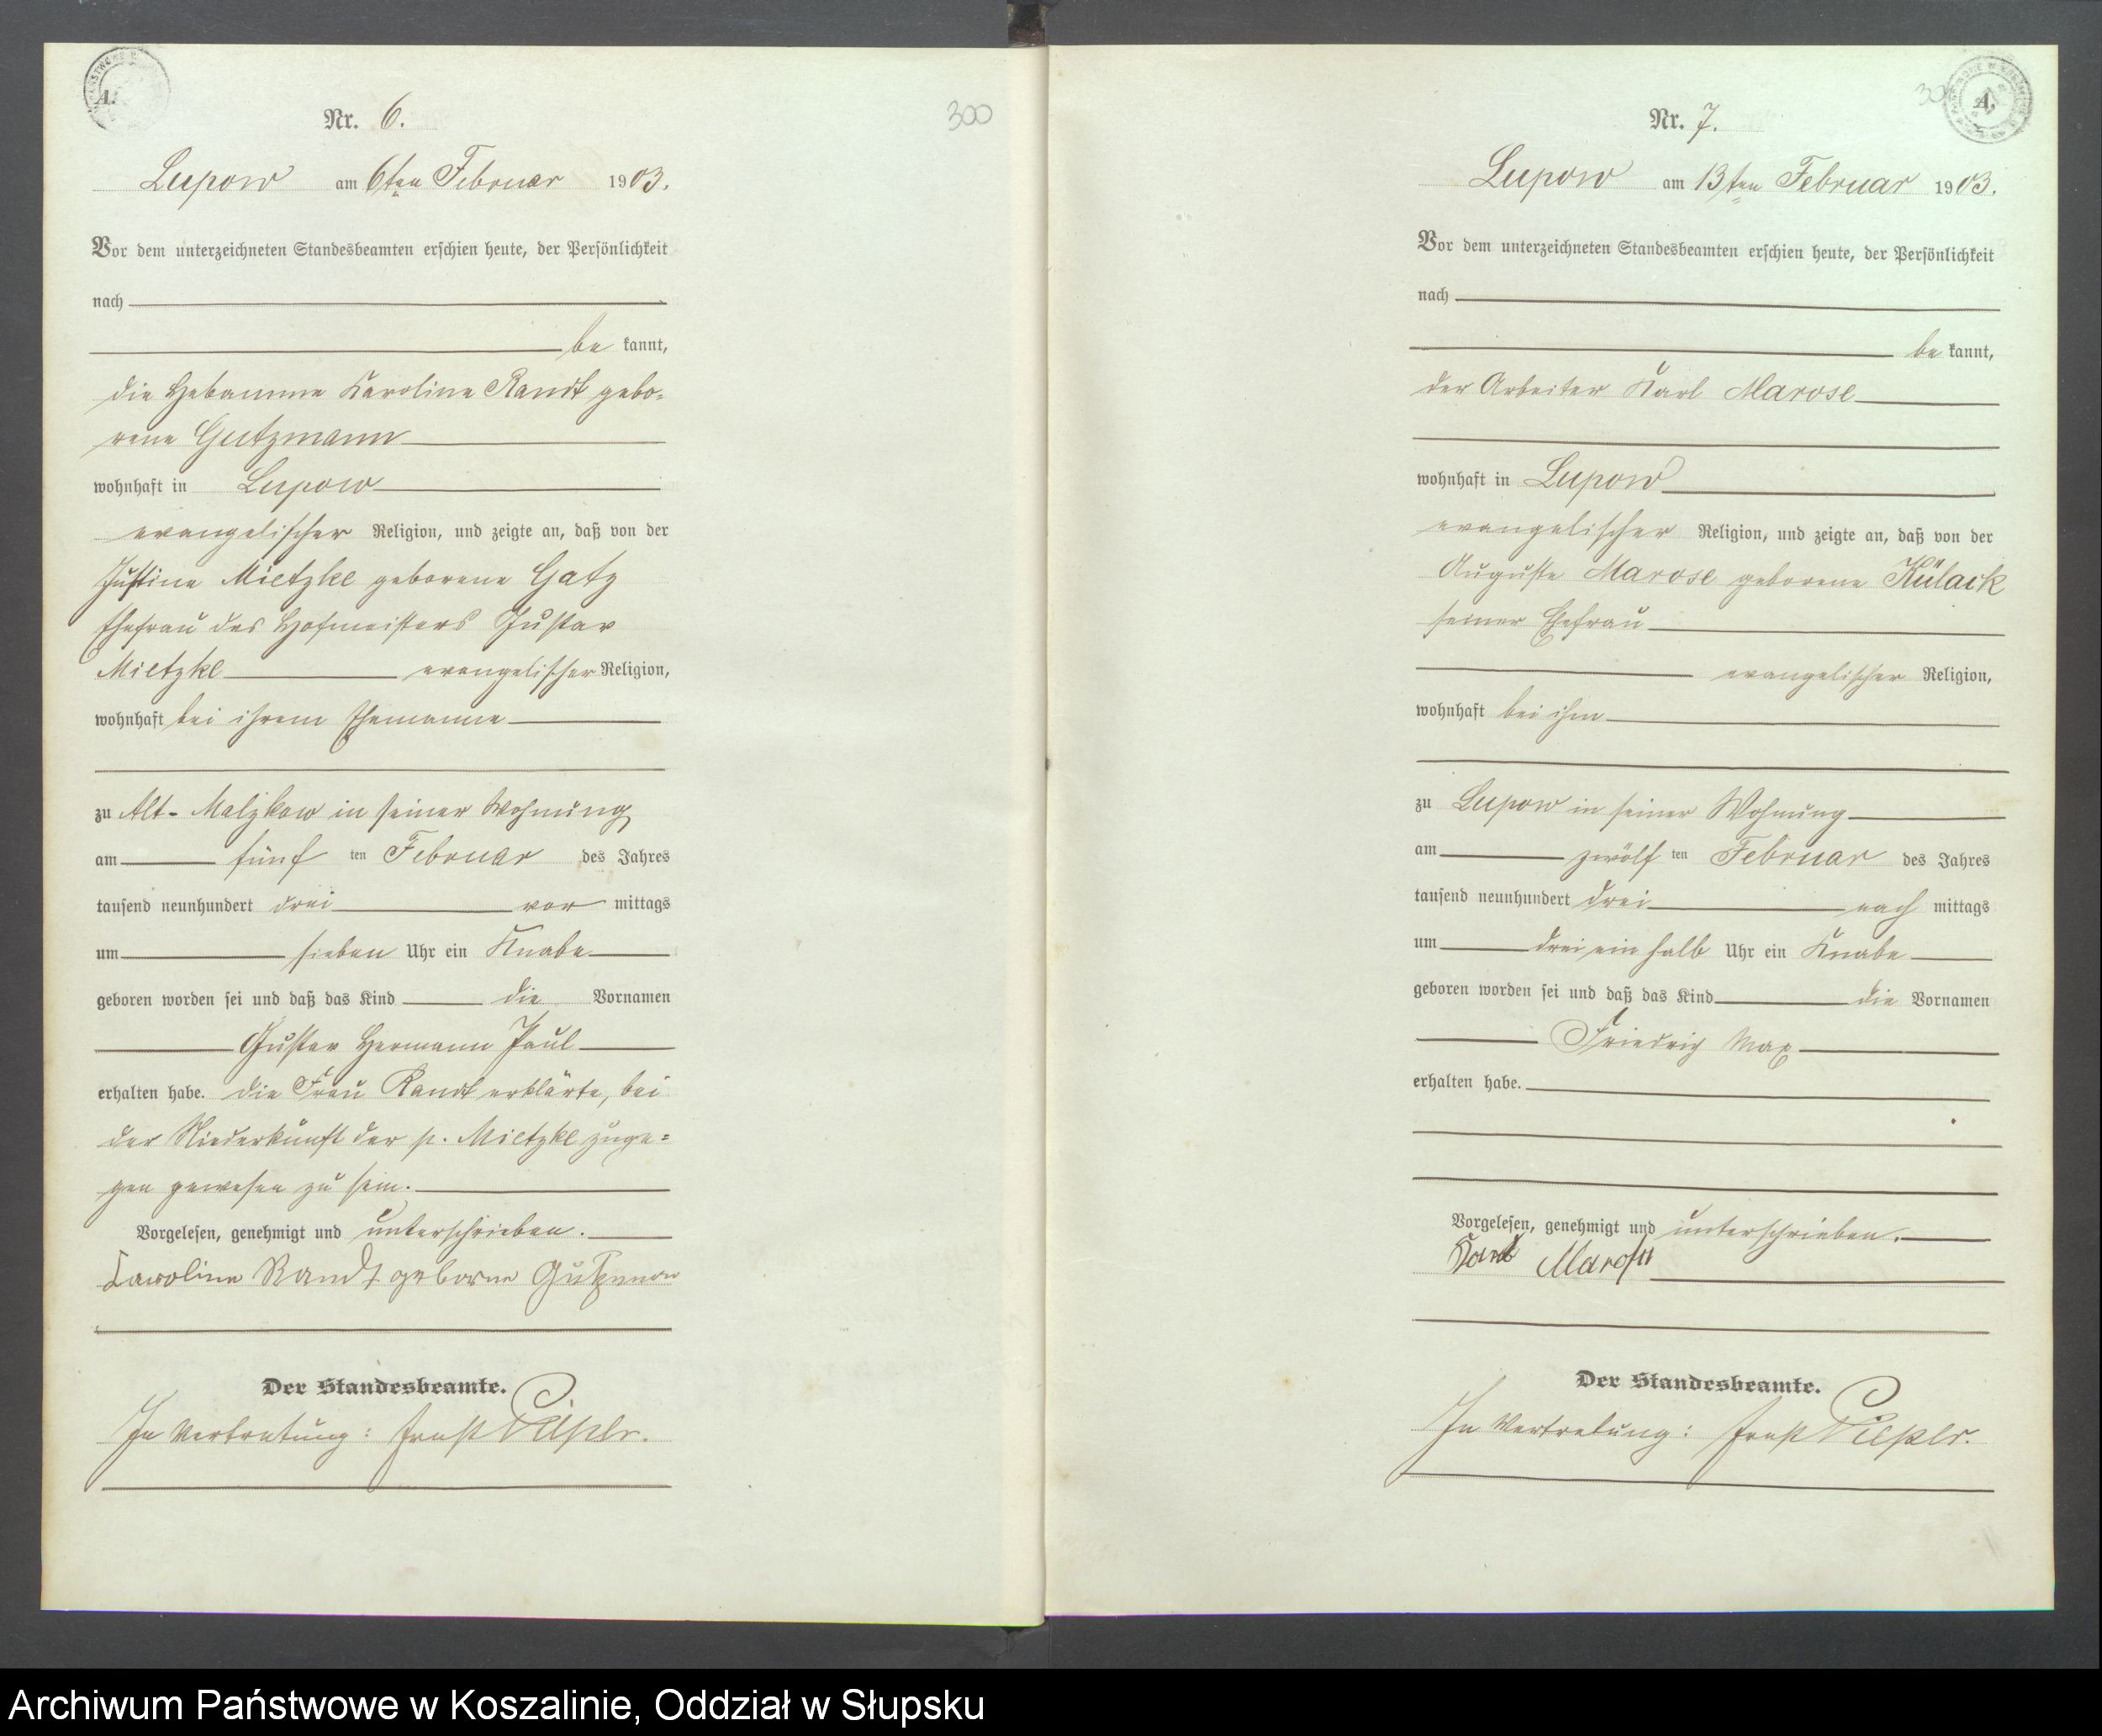 A.
Nr. 6.
300
Lupow am 6ten Februar 1903.
Vor dem unterzeichneten Standesbeamten erschien heute, der Persönlichkeit
nach
be kannt,
die Hebamme Karoline Randt gebo=
rene Gutzmann
wohnhaft in Lupow
evangelischer Religion, und zeigte an, daß von der
Justine Mietzke geborene Gatz
Ehefrau des Hofmeisters Gustav
Mietzke evangelischer Religion,
wohnhaft bei ihrem Ehemanne
zu Alt-Malzkow in seiner Wohnung
am fünf ten Februar des Jahres
tausend neunhundert drei vor mittags
um sieben Uhr ein Knabe
geboren worden sei und daß das Kind die Vornamen
Gustav Hermann Paul
erhalten habe. Die Frau Randt erklärte, bei
der Niederkunft der p. Mietzke zuge=
gen gewesen zu sein.
Vorgelesen, genehmigt und unterschrieben.
Karoline Randt geborne
Der Standesbeamte.
In Vertretung: Ernst
A.
Nr. 7.
Lupow am 13ten Februar 1903.
Vor dem unterzeichneten Standesbeamten erschien heute, der Persönlichkeit
nach
be kannt,
der Arbeiter Karl Marose
wohnhaft in Lupow
evangelischer Religion, und zeigte an, daß von der
Auguste Marose geborene Külack
seiner Ehefrau
evangelischer Religion,
wohnhaft bei ihm
zu Lupow in seiner Wohnung
am zwölf ten Februar des Jahres
tausend neunhundert drei nach mittags
um drei ein halb Uhr ein Knabe
geboren worden sei und daß das Kind die Vornamen
Friedrich Max
erhalten habe.
Vorgelesen, genehmigt und unterschrieben.
Karl Marose
Der Standesbeamte.
In Vertretung: Ernst
Archiwum Państwowe w Koszalinie, Oddział w Słupsku